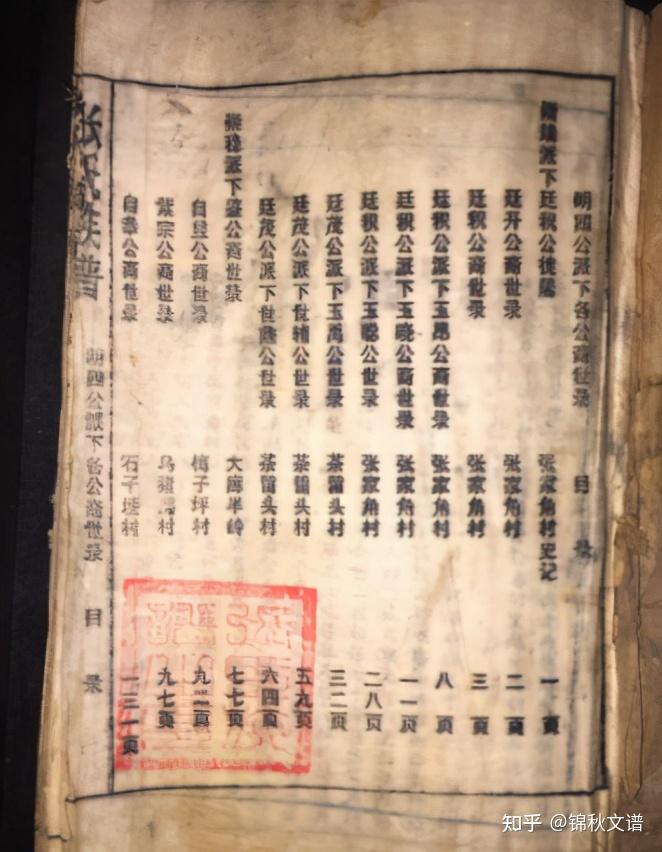 明四公派下各公裔世录 目 录
派下廷积公 张家角村史记 一 页
廷升公裔世录 张家角村 二 页
廷积公裔世录 张家角村 三 页
廷积公派下玉昂公裔世录 张家角村 八 页
廷积公派下玉晓公裔世录 张家角村 一一页
廷积公派下玉聪公世录 张家角村 二八页
廷茂公派下玉禹公世录 茶留头村 三二页
廷茂公派下世辅公世录 茶留头村 五九页
廷茂公派下世公世录 茶留头村 六四页
派下公裔世录 大半岭 七七页
自公裔世录 子坪村 九页
宗公裔世录 村 九七页
自公裔世录 石子村 一三一页
张氏族谱 明四公派下各公裔世录 目 录
知乎 @锦秋文谱